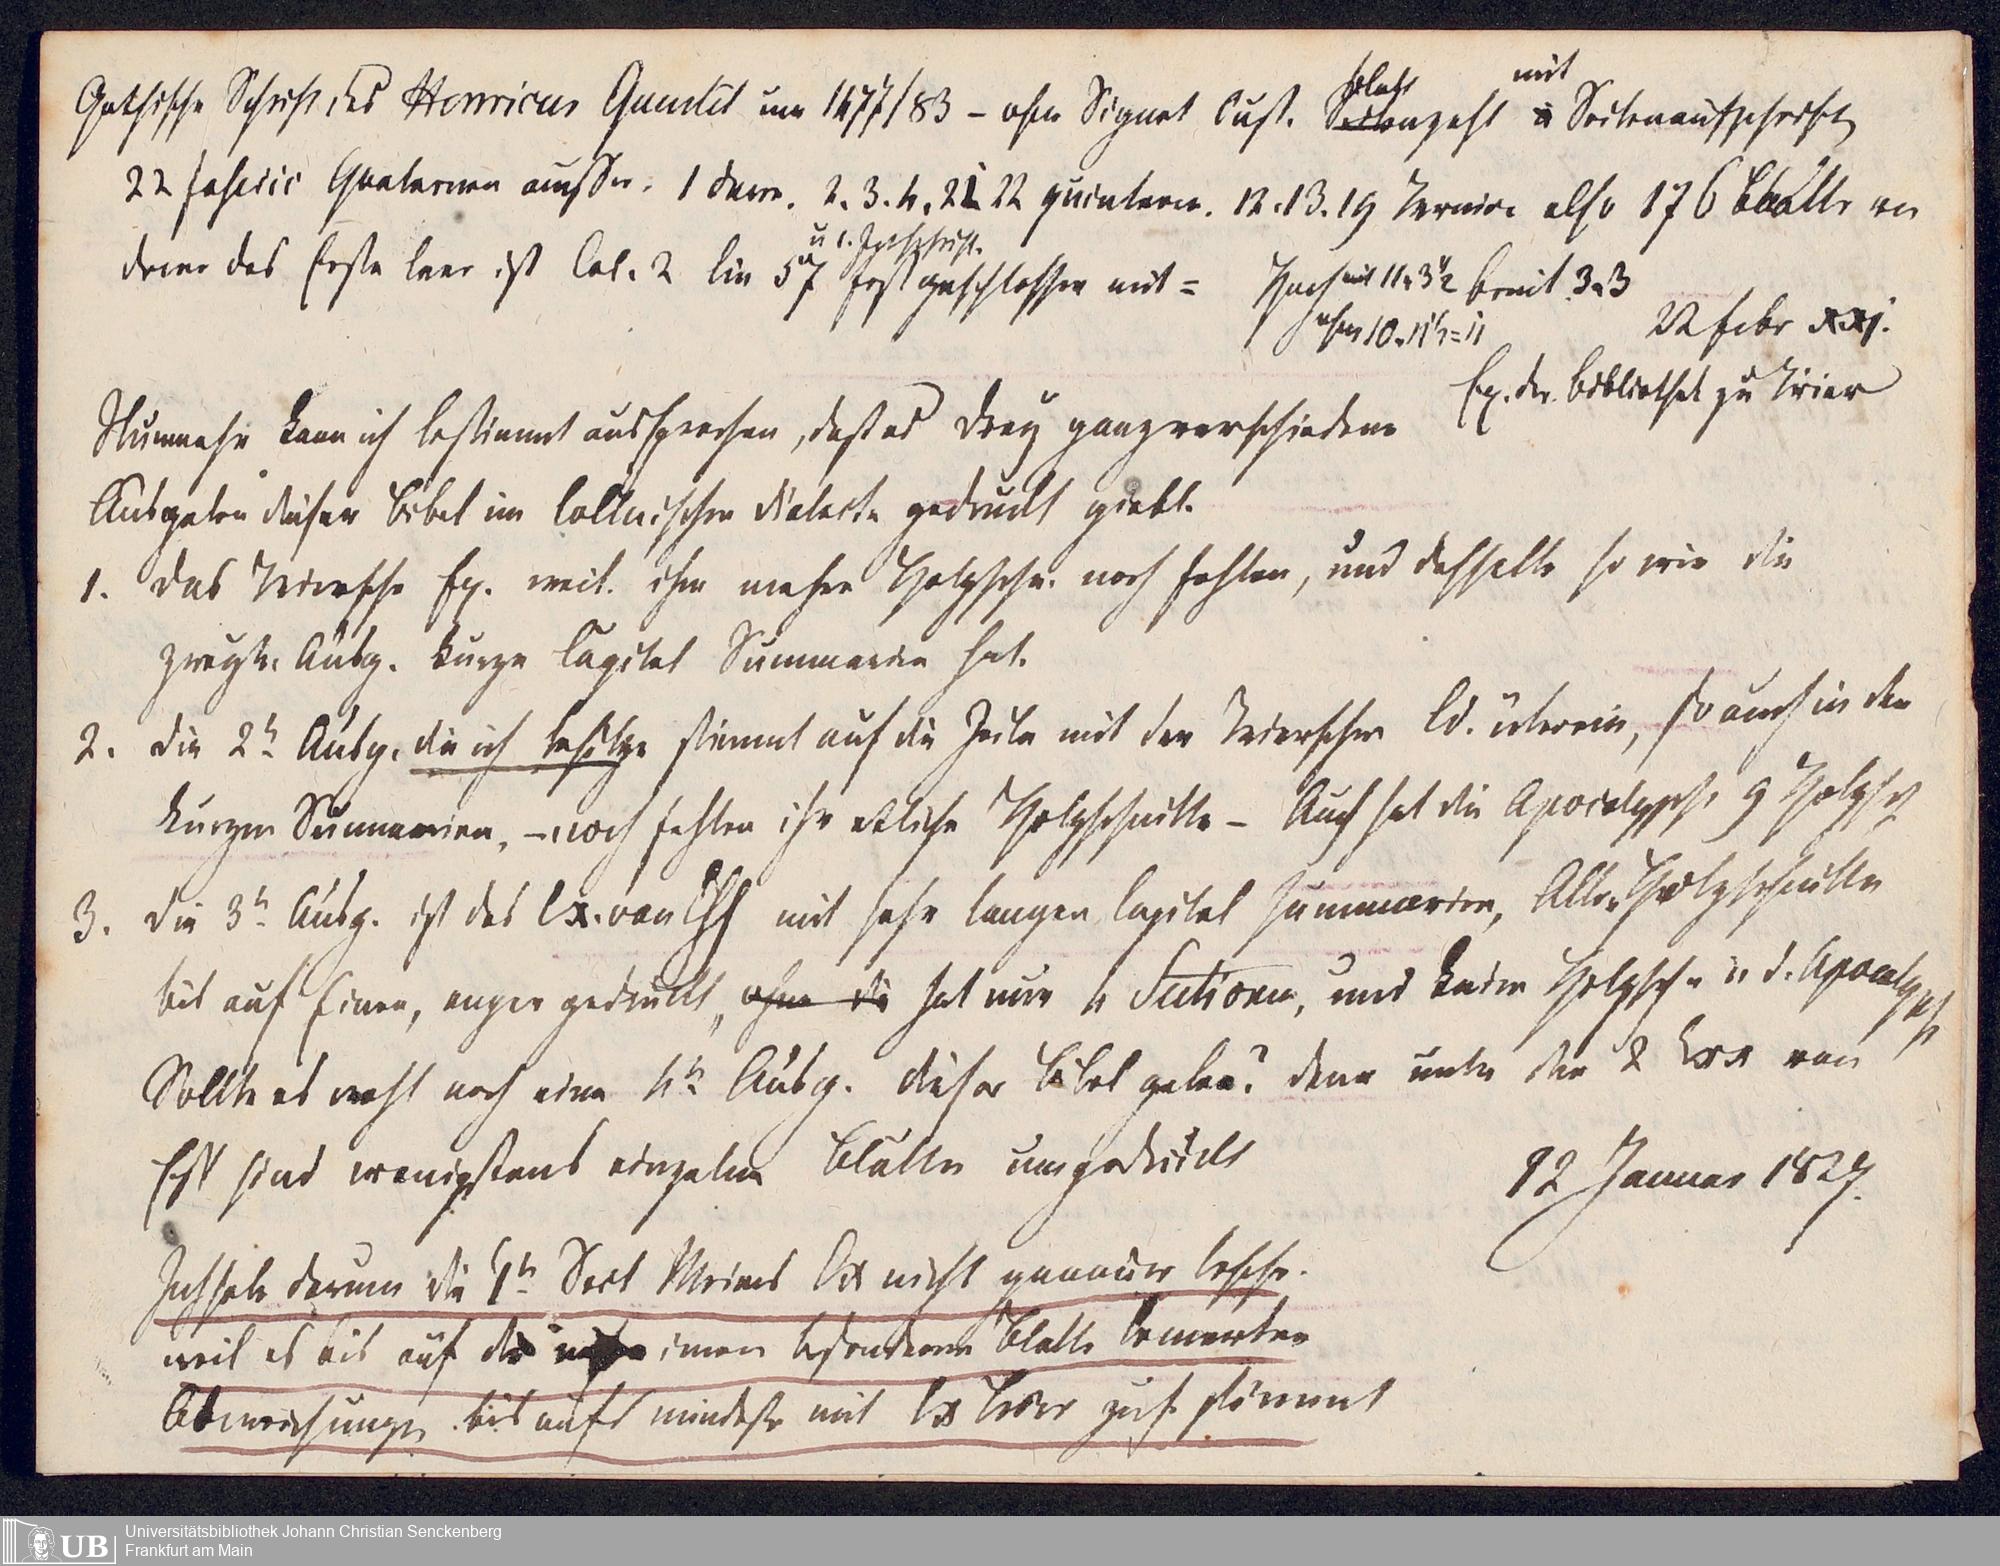 Gothische Schrift des Henricus Quentel um 1477/83 – ohne Signat Cust. Blattzahl mit Seitenaufschrift
22 Quaternen ausser 1 2. 3. 4. 21 22 quintern. 12. 13. 19 Ternion also 176 Blätter von
denen das Erste leer ist Col. 2 lin 57 geschlossen mit =
Hoch mit 11 u 3 1/2 breit 3 u 3
ohne
22 febr xxj.
Ex. der Bibliothek zu Trier
Nunmehr kann ich bestimmt aussprechen, dass es drey ganz verschiedene
Ausgaben dieser Bibel im Collnischen Dialecte gedruckt giebt.
1. das Triersche Ex. weil ihm mehre Holzschn. noch fehlen, und dasselbe so wie die
zweyte Ausg. kurze Capitel Summarien hat.
2. die 2te Ausg. die ich besitze stimmt auf die Zeile mit der Trierschen Ed. überein, so auch in den
kurzen Summarien, – noch fehlen ihr etliche Holzschnitte – Auch hat die Apocalypse 9 Holzsch
3. die 3te Ausg. ist das Ex. von Eß mit sehr langen Capitel Summarien, Alle Holzschnitte
bis auf Einen, enger gedruckt, ohne die hat nur 4 und keine Holzsch in d. Apocalypse
Sollte es wohl noch eine 4te Ausg. dieser Bibel geben? denn unter den 2 Exx von
Eß sind wenigstens einzelne Blätter umgedruckt
12 Januar 1827.
Ich habe darum die Meines Ex nicht genauer beschr.
weil es bis auf die einem besonderen Blatte bemerkten
Abweichungen bis aufs mindeste mit Ex Trier zus. stimmt
UB
Universitätsbibliothek Johann Christian Senckenberg
Frankfurt am Main